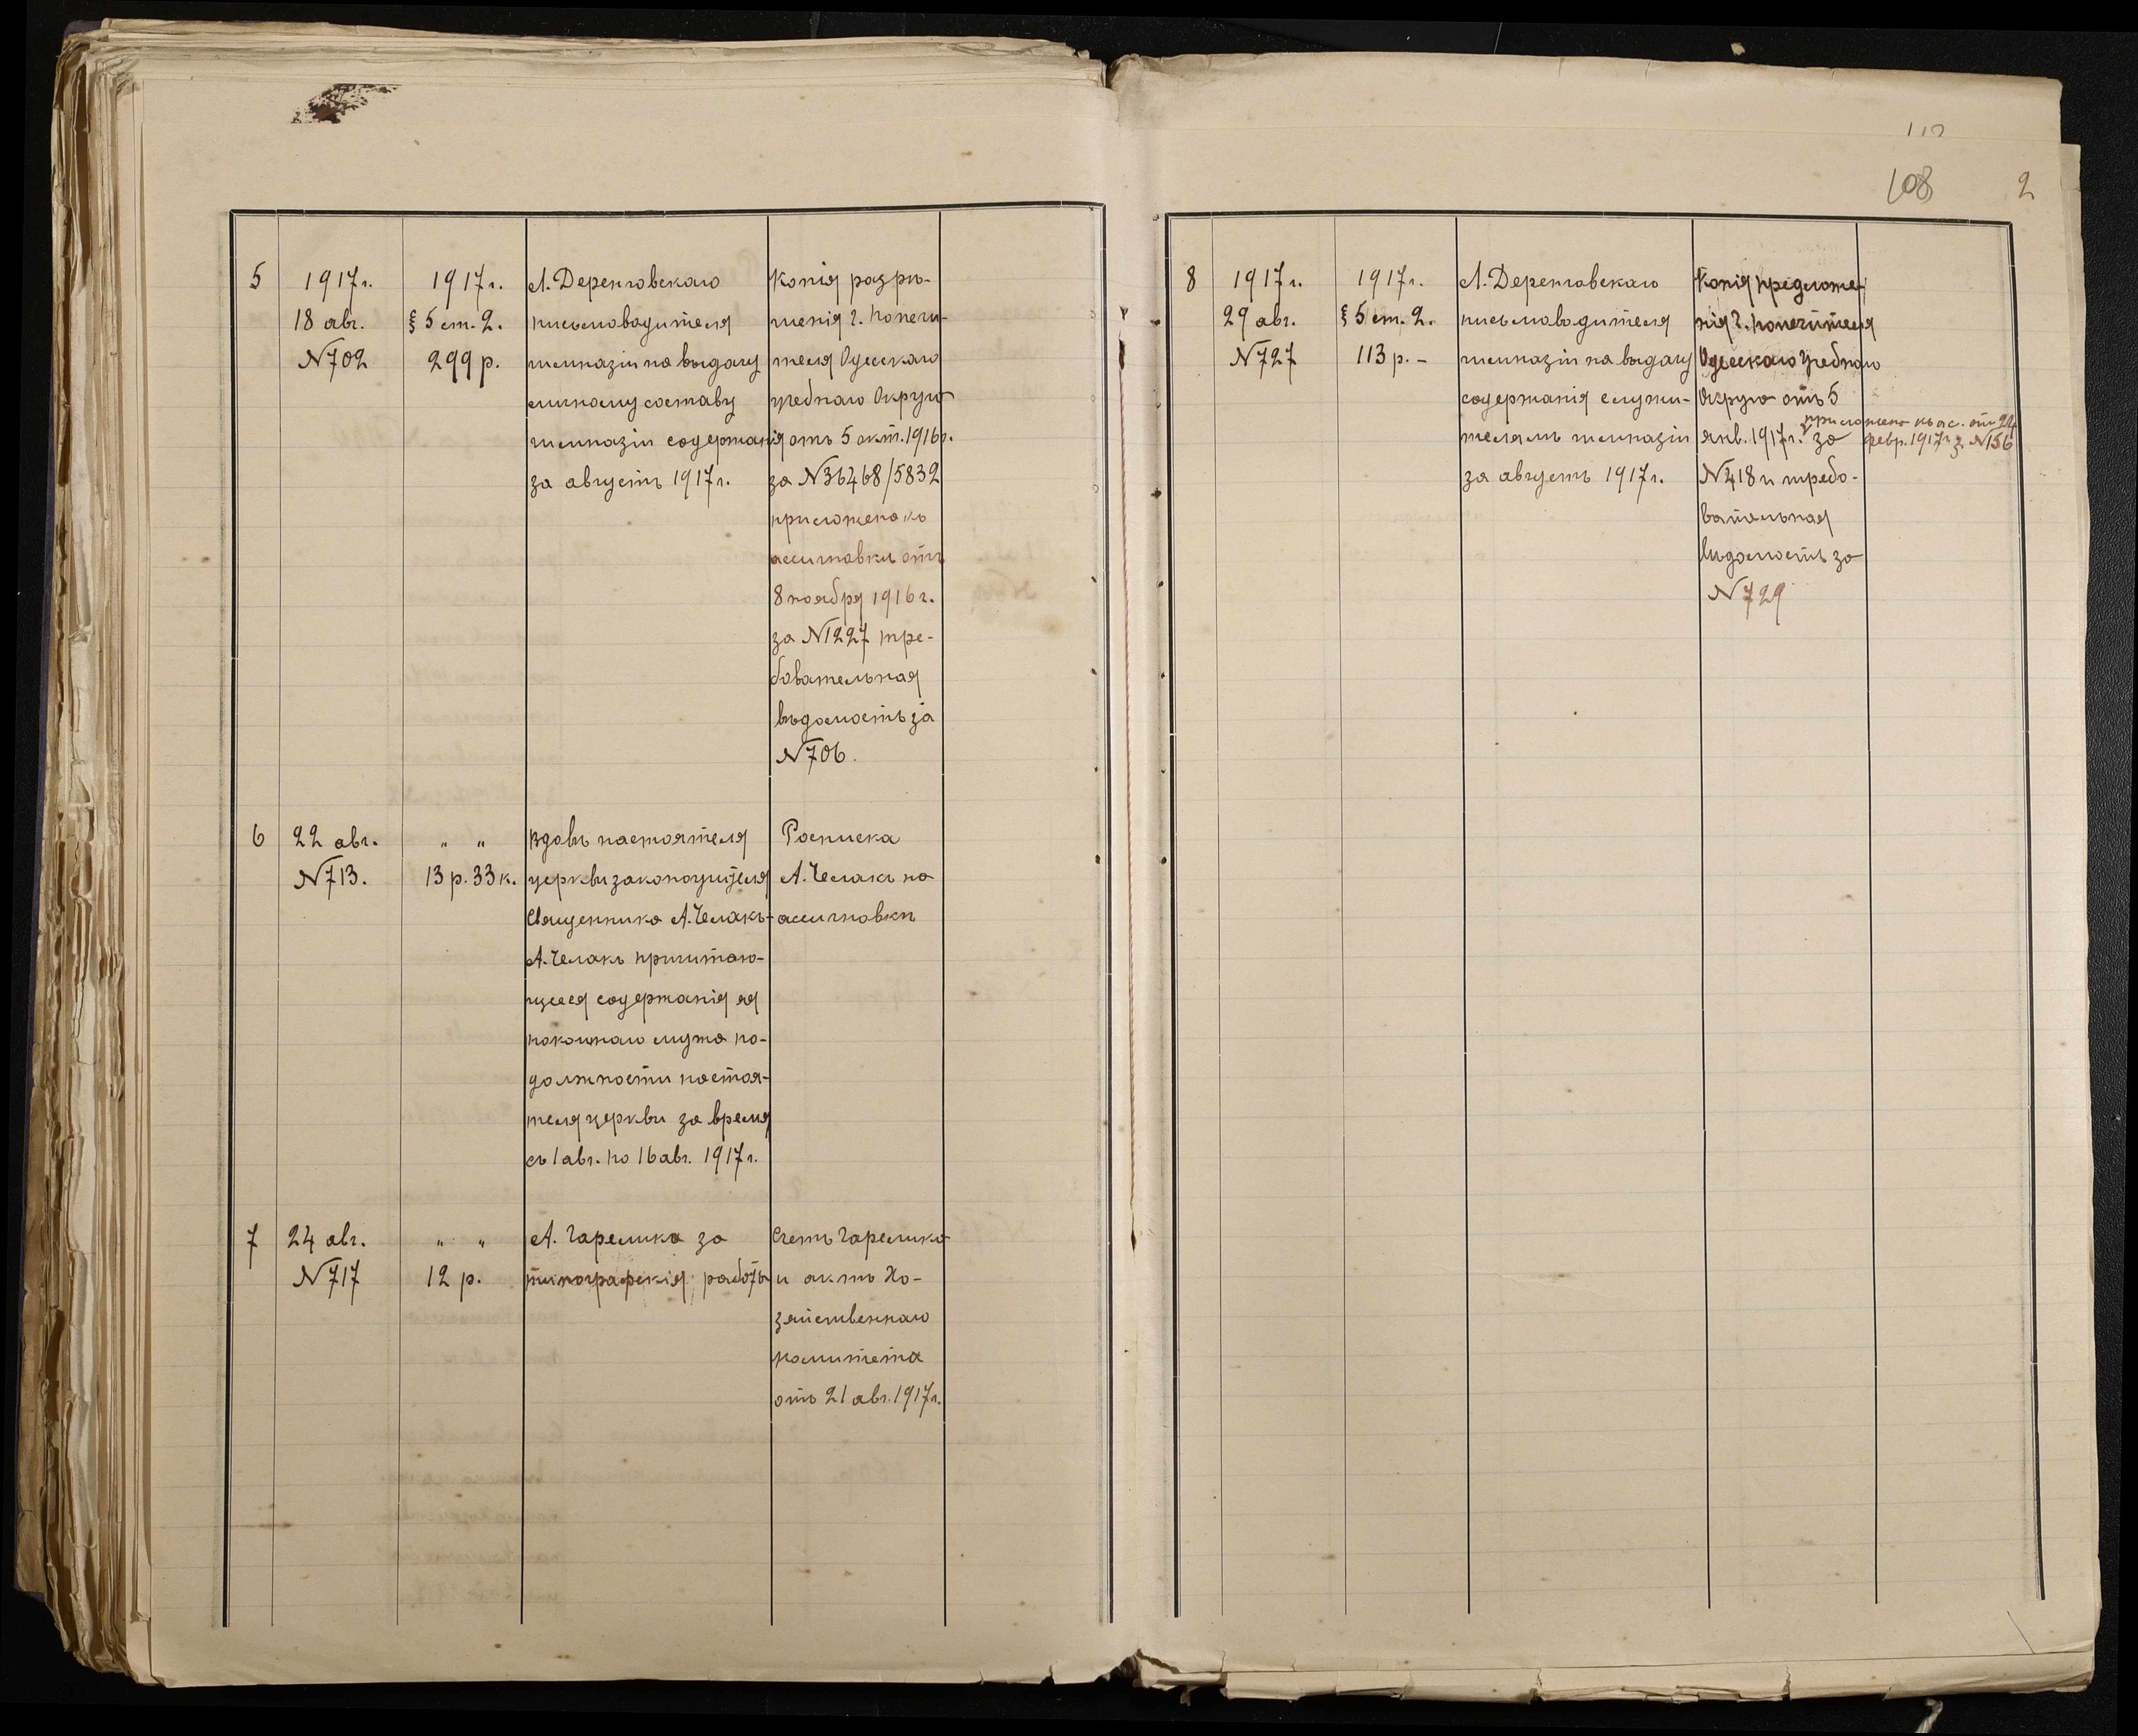 108
2
5
1917 г.
18 авг.
N 702
1917 г.
§ 5 ст. 2.
299 р.
письмоводителя
гимназіи на выдачу
личному составу
гимназіи содержанія
за августъ 1917 г.
Копія разрѣ-
шенія г. Попечи-
теля Одесскаго
Учебнаго Округа
отъ 5 окт. 1916 г.
за N 36468/5832
приложена къ
ассигновки отъ
8 ноября 1916 г.
за N 1227 тре-
бовательная
вѣдомость за
N 706.
6
22 авг.
N 713.
" "
13 р. 33 к.
Вдовѣ настоятеля
церкви законоучителя
Священника А. Челакъ-
А. Челакъ причитаю-
щееся содержанія ея
покойнаго мужа по-
должности настоя-
теля церкви за время
съ 1 авг. по 16 авг. 1917 г.
Росписка
А. Челакъ на
ассигновкѣ
7
24 авг.
N 717
" "
12 р.
А. Гарелика за
типографскія работы
Счетъ Гарелика
и актъ Хо-
зяйственнаго
Комитета
отъ 21 авг. 1917 г.
8
1917 г.
29 авг.
N 727
1917 г.
§ 5 ст. 2.
113 р. -
письмоводителя
гимназіи на выдачу
содержанія служи-
телямъ гимназіи
за августъ 1917 г.
Копія предложе-
нія г. Попечителя
Одесскаго Учебнаго
Округа отъ 5
янв. 1917 г. за
N 418 и требо-
вательная
вѣдомость за
N 729
приложена къ ас. отъ 24
февр. 1917 г. з. N 156